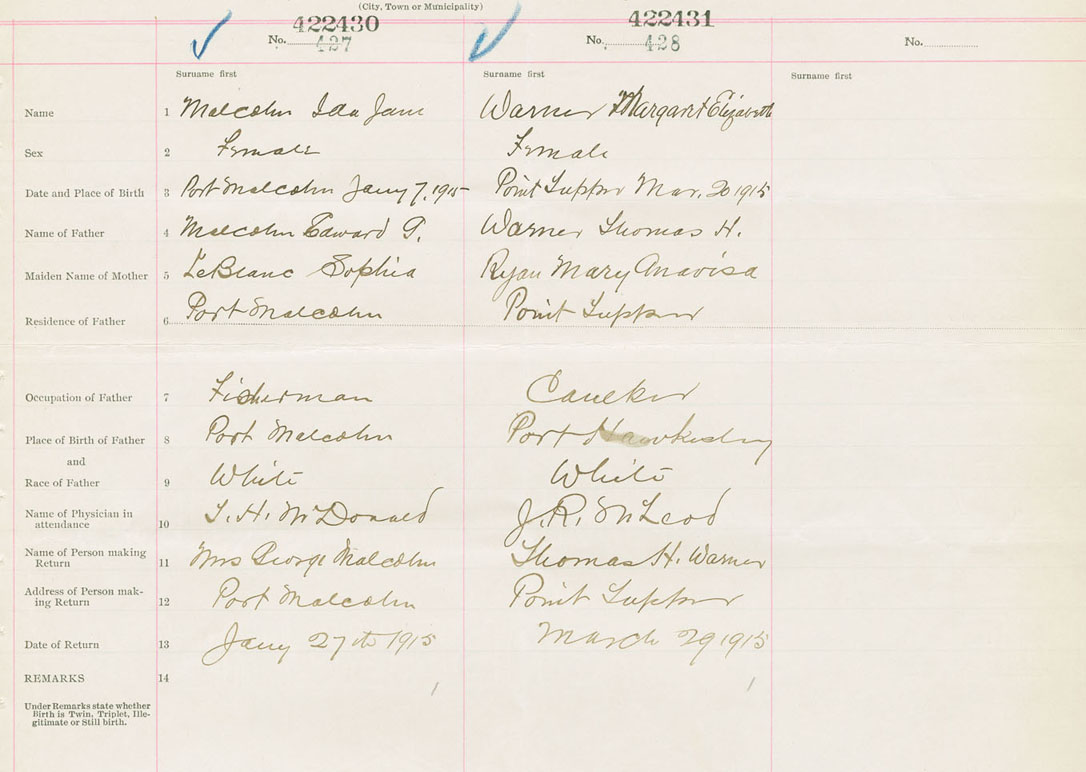 (City, Town or Municipality)
422430 422431
No. 427 No. 428 No.
Surname first Surname first Surname first
Name 1 Malcolm Ida Jane Warner Margaret Elizabeth
Sex 2 Female Female
Date and Place of Birth 3 Port Malcolm Jany 7, 1915 Point Tupper Mar. 20 1915
Name of Father 4 Malcolm Edward P. Warner Thomas H.
Maiden Name of Mother 5 LeBlanc Sophia Ryan Mary
Residence of Father 6 Port Malcolm Point Tupper
Occupation of Father 7 Fisherman Caulker
Place of Birth of Father 8 Port Malcolm Port Hawkesbury
and
Race of Father 9 White White
Name of Physician in
attendance 10 T. H. McDonald J. R. McLeod
Name of Person making
Return 11 Mrs George Malcolm Thomas H. Warner
Address of Person mak-
ing Return 12 Port Malcolm Point Tupper
Date of Return 13 Jany 27th 1915 March 29 1915
REMARKS 14
Under Remarks state whether
Birth is Twin, Triplet, Ille-
gitimate or Still birth.